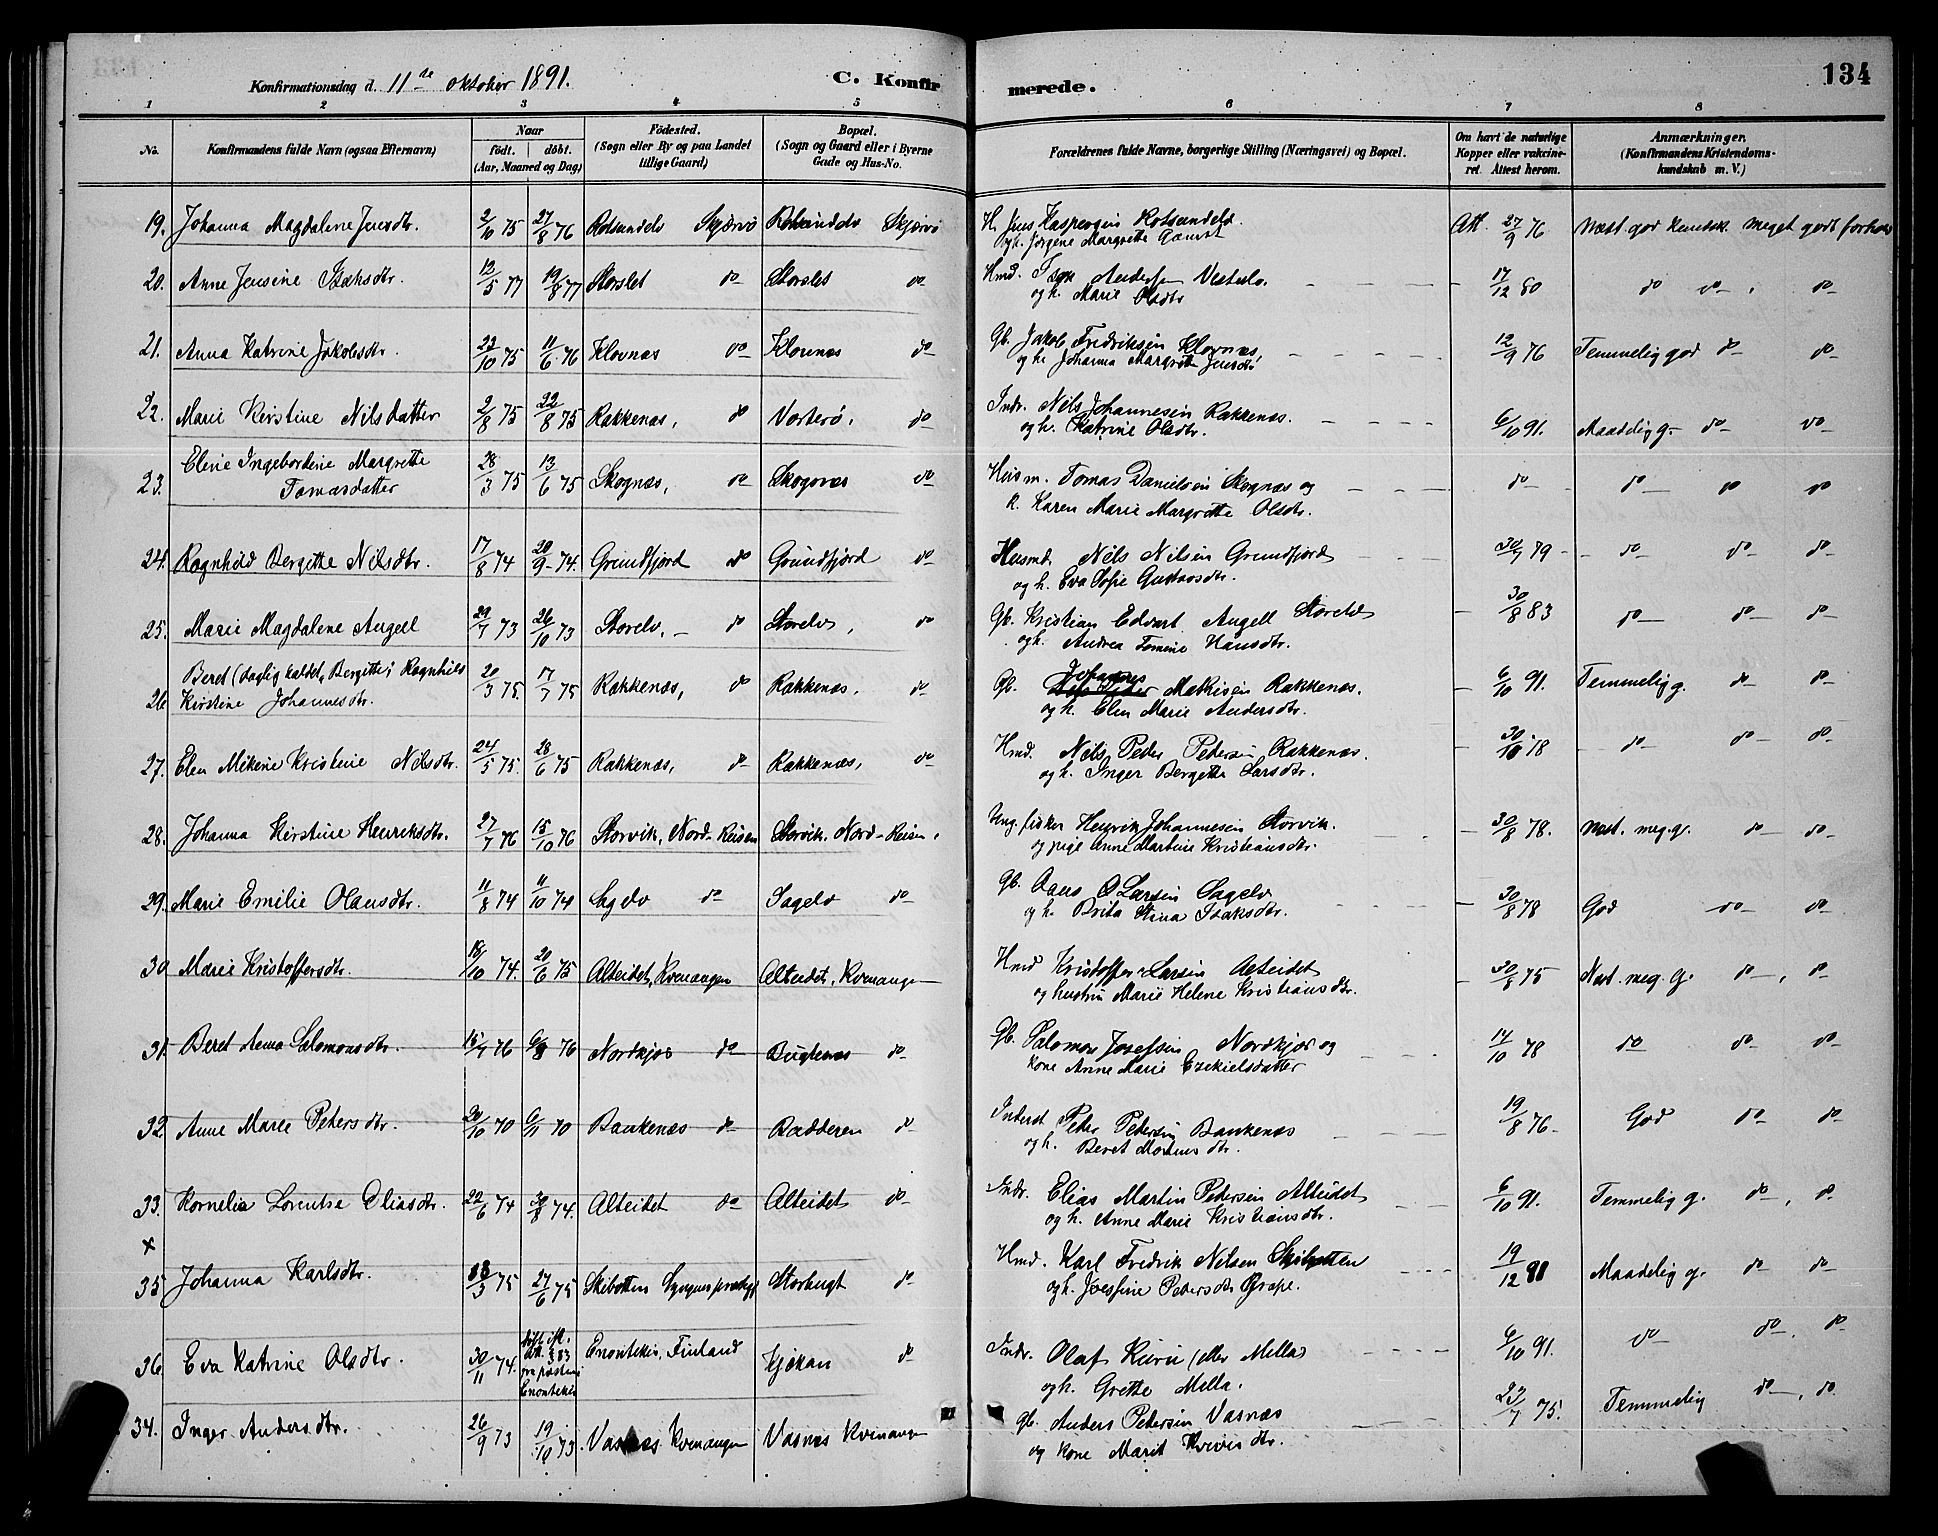 134
Konfirmationsdag d. 11te oktober 1891. C. Konfirmerede.
1 2 3 4 5 6 7 8
No. Konfirmandens fulde Navn (ogsaa Efternavn) Naar født. døbt. (Aar, Maaned og Dag) Fødested. (Sogn eller By og paa Landet tillige Gaard) Bopæl. (Sogn og Gaard eller i Byerne Gade og Hus-No. Forældrenes fulde Navne, borgerlige Stilling (Næringsvei) og Bopæl. Om havt de naturlige Kopper eller vakcineret. Attest herom. Anmærkninger. (Konfirmandens Kristendomskundskab m. V.)
19. Johanna Magdalene Jensdtr. 2/10 75 27/8 76 Rotsundelv Skjærvø Rotsundelv Skjærvø H. Jens Kaspersen Rotsundelv. Att. 27/9 76 Næst. god kundsk. meget godt forhold
og h. Jørgine Margrethe
20. Anne Jensine Isaksdtr. 13/5 77 19/8 77 Storslet do Storslet do Hmd. Isak Andersen 17/12 80 do do do
og h. Marie Olsdtr
21. Anna Katrine Jakobsdtr. 22/10 75 11/6 76 Klovnæs do Klovnæs do Gb. Jakob Fredriksen Klovnæs 12/9 76 Temmelig god do do
og h. Johanna Margrethe Jensdtr
22. Marie Kirstine Nilsdatter 2/8 75 22/8 75 Rakkenæs, do Vorterø. do Indr. Nils Johannesen Rakkenæs. 6/10 91. Maadelig g. do do
og h. Katrine Olsdtr.
Elene Ingebordine Margrethe
23. Tomasdatter 28/3 75 13/6 75 Skognæs, do Skognæs do Husm. Tomas Danielsen Skognæs og do do do do
k. Karen Marie Margrethe Olsdtr.
24. Ragnhild Bergitte Nilsdtr. 17/8 74 20/9 74. Grundfjord do Grundfjord do Husmd Nils Nilsen Grundfjord 30/7 79 do do do
og h. Eva Sofie Gustavsdtr.
25. Marie Magdalene Angell 29/7 73 26/10 73 Storelv. do Storelv, do Gb. Kristian Edvart Angell Storelv 30/8 83 do do do
og h. Andrea Tomine Hansdtr.
Beret (daglig kaldet Bergitte) Ragnhild Johannes
26 Kirstine Johannesdtr. 20/3 75. 17/7 75 Rakkenæs, do Rakkenæs, do Gb. Mathisen Rakkenæs. 6/10 91. Temmelig g. do do
og h. Elen Marie Andersdtr.
27. Elen Mikene Kristine Nilsdtr. 24/5 75. 28/6 75 Rakkenæs, do Rakkenæs, do Hmd. Nils Peder Pedersen Rakkenæs. 30/10 78 do do do
og h. Inger Bergitte Larsdtr.
28. Johanna Kirstine Henriksdtr. 27/7 76 15/10 76 Storvik, Nord-Reisen Storvik. Nord-Reisen. Ung. fisker Henrik Johannesen Storvik. 30/8 78. Næst. meg. g. do do
og pige Anne Martine Kristiansdtr.
29. Marie Emilie Olausdtr. 11/8 74 11/10 74 Sagelv do Sagelv do Gb. O Larsen Sagelv 30/8 78 God do do
og h. Brita Stina Isaksdtr.
30 Marie Kristoffersdtr. 18/10 74. 20/6 75 Alteidet, Kvenangen Alteidet, Kvenangen Hmd Kristoffer Larsen Alteidet 30/8 75 Næst. meg. g. do, do
og hustru Marie Helene Kristiansdtr.
31. Beret Anna Salomonsdtr. 15/7 76 6/8 76 Nordkjos do Bugtenæs do Gb. Salomon Josefsen Nordkjos og 14/10 78 do do do
kone Anne Marie Ezekielsdatter
32. Anne Marie Petersdtr. 20/10 70 6/11 70 Bankenæs do Badderen do Inderst Peter Petersen Bankenæs 19/8 76 God do do
og h. Beret Mortensdtr.
33. Kornelia Lorentse Eliasdtr. 22/6 74 30/8 74. Alteidet do Alteidet do Indr. Elias Martin Petersen Alteidet 6/10 91. Temmelig g. do, do
og h. Anne Marie Kristiansdtr.
x
35 Johanna Karlsdtr. 13/3 75 27/6 75 Skibotten Storbugt do Hmd. Karl Fredrik Nilsen Skibotten 19/12 81 Maadelig g. do do
og h. Josefine Petersdtr
36. Eva Katrine Olsdtr. 30/11 74. Enontekis Enontekis, Finland Kjøkan do Indr. Olaf Kuru (eller Mella) 6/10 91. do do. do
og h. Grethe Mella.
34. Inger Andersdtr. 26/9 73 19/10 73 Vasnæs Kvenangen Vasnæs Kvenangen Gb. Anders Petersen Vasnæs 23/7 75. Temmelig do, do
og kone Marit